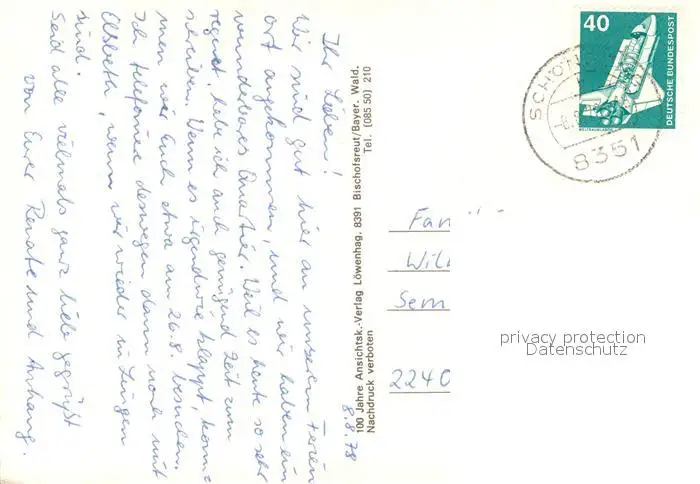 Ihr Lieben!
Wir sind gut hier an unserem Ferien
ort angekommen, und wir haben ein
wunderbares Quartier. Weil es heute so sehr
regnet, habe ich auch genügend Zeit zum
schreiben. Wenn es irgendwie klappt, kom=
men wir Euch etwa am 26.8. besuchen.
Ich telefoniere deswegen dann noch mit
Elsbeth, wenn wir wieder in Lingen
sind.
Seid alle vielmals ganz liebe gegrüßt
von Eurer Renate und Anhang.
8.8.78
100 Jahre Ansichtsk.-Verlag Löwenhag, 8391 Bischofsreut/Bayer. Wald.
Tel. (085 50) 210
Nachdruck verboten
40
DEUTSCHE BUNDESPOST
WELTRAUMLABOR
SCHÖN
8351
Fam
Wil
Sem
2240
privacy protection
Datenschutz